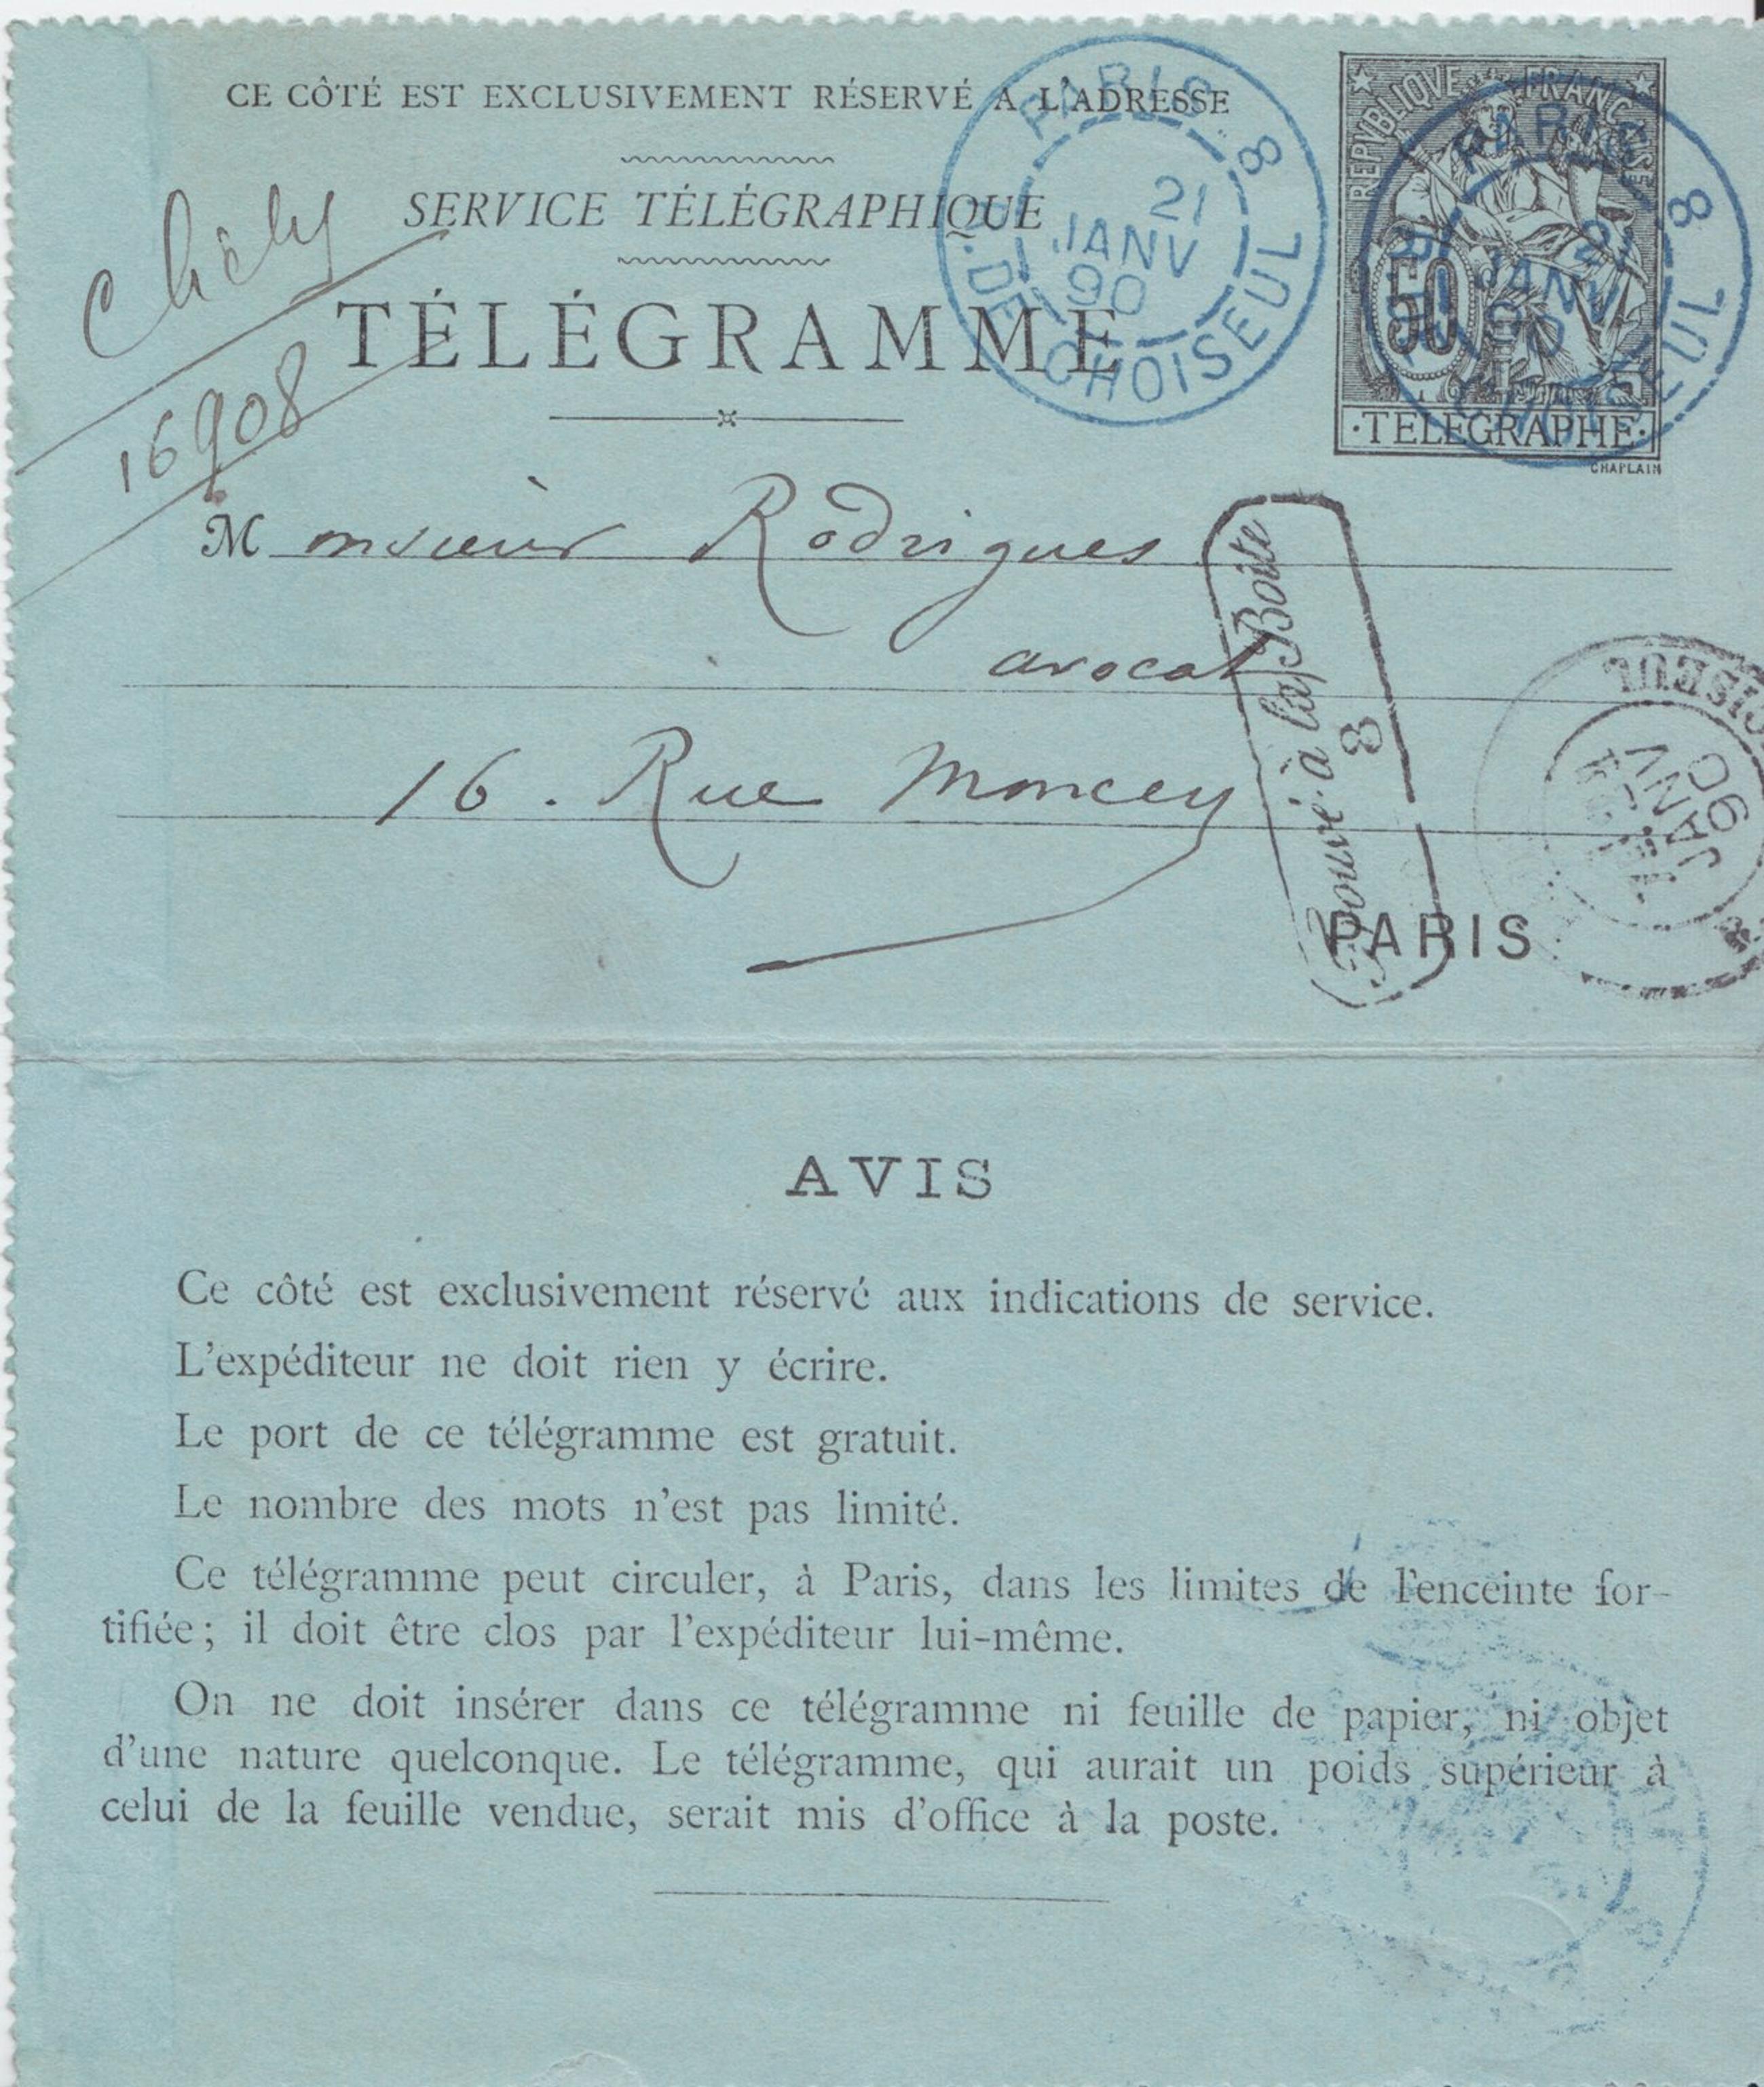 CE CÔTÉ EST EXCLUSIVEMENT RÉSERVÉ A L'ADRESSE
SERVICE TÉLÉGRAPHIQUE
TÉLÉGRAMME
PARIS 8
21
JANV
90
R. DE CHOISEUL
REPVBLIQVE FRANCAISE
50
·TELEGRAPHE·
CHAPLAIN
PARIS 8
21
JANV
90
CHOISEUL
16908
Monsieur Rodrigues
avocat
16. Rue Moncey
Trouvé à la Boite
8
PARIS
JANV
90
AVIS
Ce côté est exclusivement réservé aux indications de service.
L'expéditeur ne doit rien y écrire.
Le port de ce télégramme est gratuit.
Le nombre des mots n'est pas limité.
Ce télégramme peut circuler, à Paris, dans les limites de l'enceinte for-
tifiée; il doit être clos par l'expéditeur lui-même.
On ne doit insérer dans ce télégramme ni feuille de papier, ni objet
d'une nature quelconque. Le télégramme, qui aurait un poids supérieur à
celui de la feuille vendue, serait mis d'office à la poste.